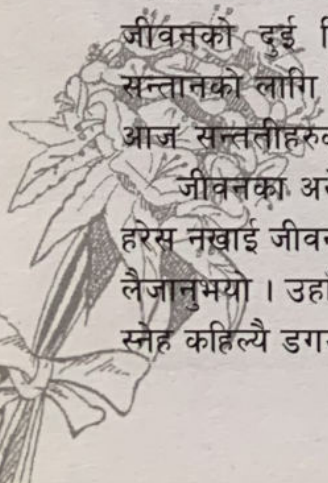 जीवनको दुई
सन्तानको लागि
आज सन्ततीहरु
जीवनका
हरेस नखाई
लैजानुभयो ।
स्नेह कहिल्यै